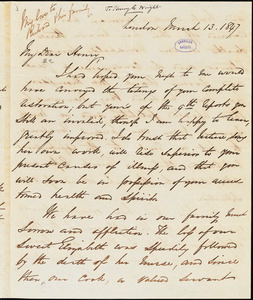 To Henry C. Wright.
My love to
Richard & his family
London March 13. 1847
My Dear Henry
I had hoped your next to me would
have conveyed the tidings of your complete
restoration, but yours of the 9th reports you
still an invalid, though I am happy to learn,
greatly improved. I do trust that nature, doing
her own work, will rise superior to your
present causes of illness, and that you
will soon be in possession of your accus
tomed health and spirits.
We have had in our family much
sorrow and affliction. The loss of our
sweet Elizabeth was speedily followed
by the death of her nurse, and since
then, our Cook, a valued servant